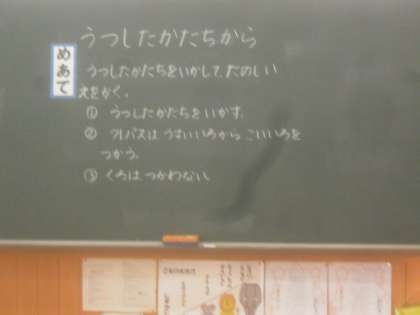 うつしたかたちから
めあて
うつしたかたちをいかして、たのしい
えをかく。
① うつしたかたちをいかす。
② クレパスは うすいいろから こいいろを
つかう。
③ くろは つかわない